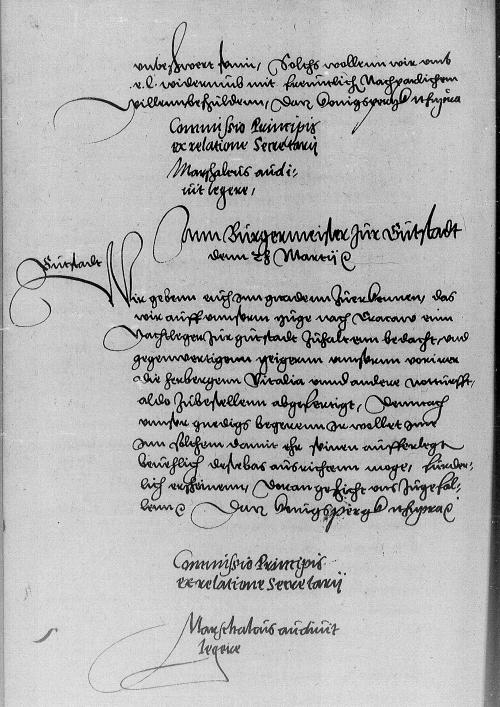 unbeschwert seinn, Solchs wollenn wir umb
e. l. widerumb mit freuntlich Nachparlichem
willenn beschuldenn, Datum Konigspergk ut supra
Commissio Principis
ex relatione Secretarij
Marschalcus audi-
uit legere,
Ann Bürgermeister zur Gutstadt
denn 28 Martij
Gutstadt
Wir gebenn euch inn gnadenn zuerkennen, das
wir auff unserm zuge nach Cracaw ein
Nachtleger zur gutstadt zuhaltenn bedacht, und
gegenwertigenn zeigernn unsernn vorirer
die herbergenn Vitalia unnd andere notturfft,
aldo zubestellenn abgefertigt, Demnach
unser gnedigs begerenn Ir wollet ime
inn solchem damit ehr seinen aufferlegt
bevehlich desebas ausrichtenn moge, furder-
lich erscheinenn, Doran geschicht uns zugefal-
lenn Datum Konigspergk ut supra
Commissio Principis
ex relatione Secretarij
Marschalcus audiuit
legere